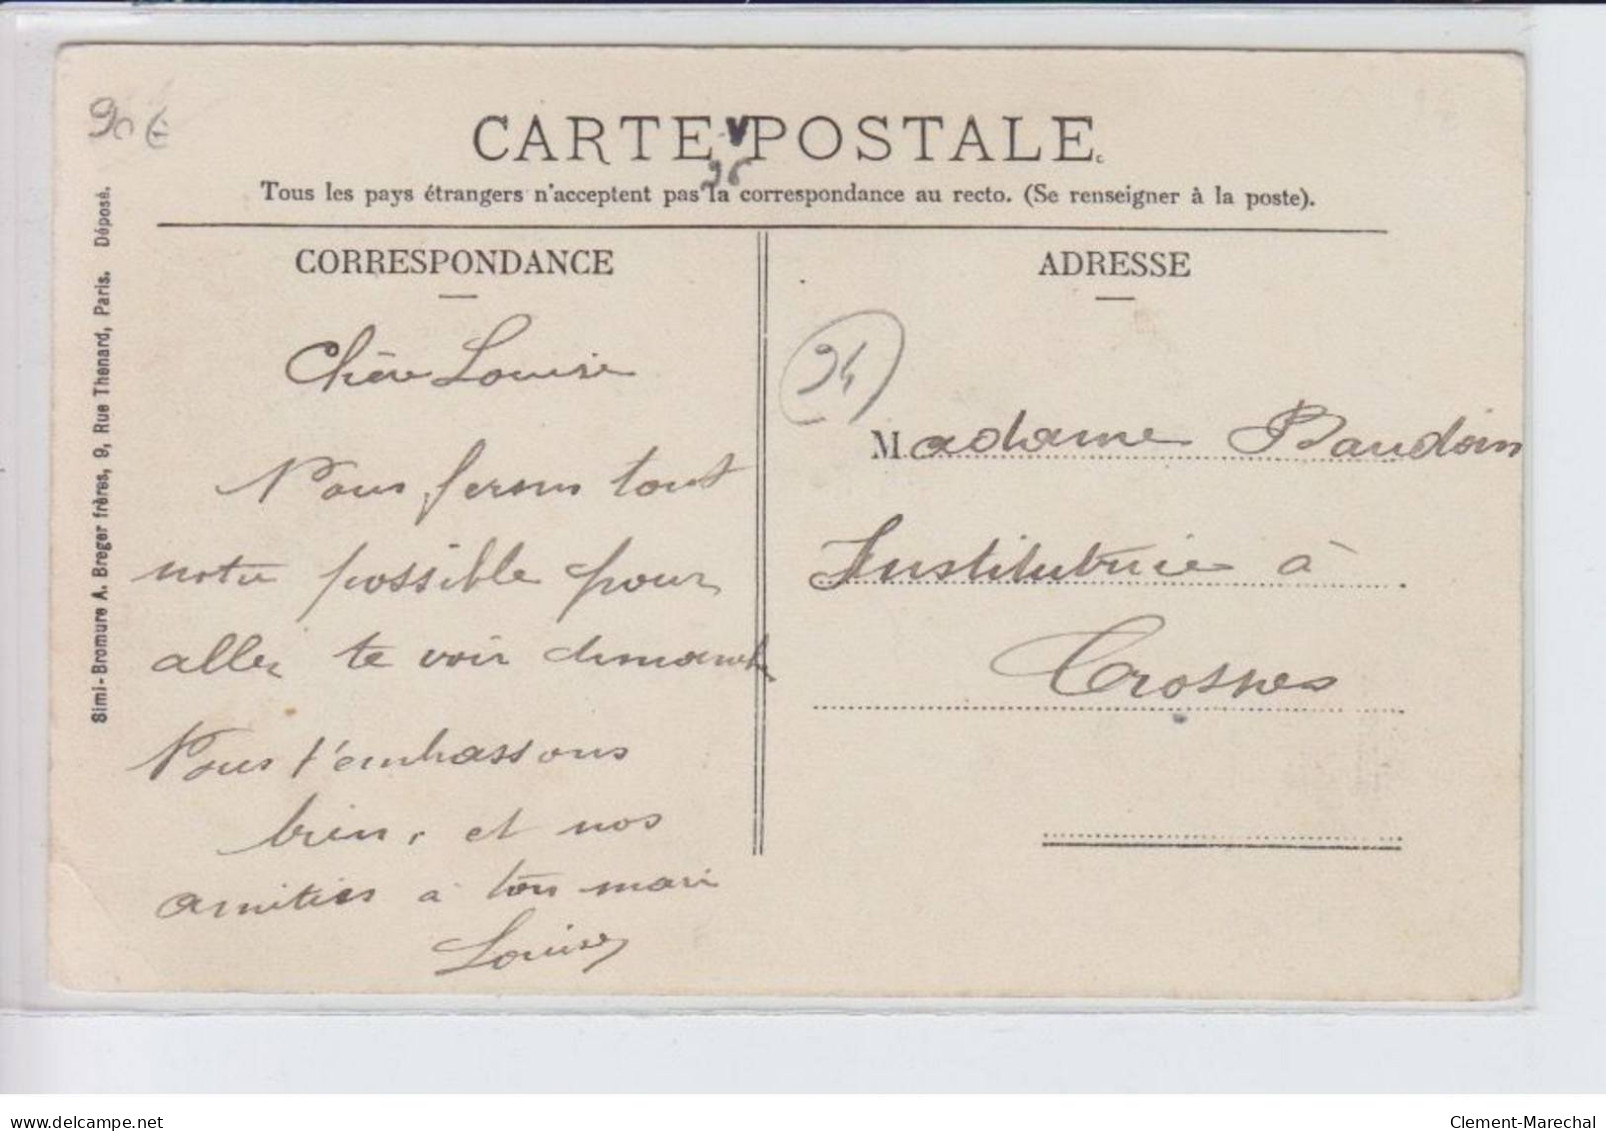 90€
CARTE POSTALE
Tous les pays étrangers n'acceptent pas la correspondance au recto. (Se renseigner à la poste).
Simi-Bromure A. Breger frères, 9, Rue Thenard, Paris. Déposé.
CORRESPONDANCE
Chère Louise
Nous ferons tout
notre possible pour
aller te voir dimanche
Nous t'embrassons
bien, et nos
amitiés à ton mari
Louise
ADRESSE
94
Madame Baudoin
Institutrice à
Crosnes
delcampe.net
Clement-Marechal